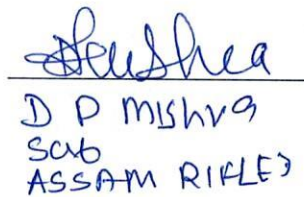 D P Mishra
Sub
ASSAM RIFLES